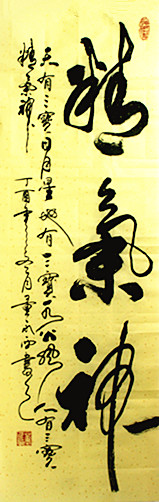 精氣神
天有三寶日月星地有三寶水火風人有三寶
精氣神
丁酉年